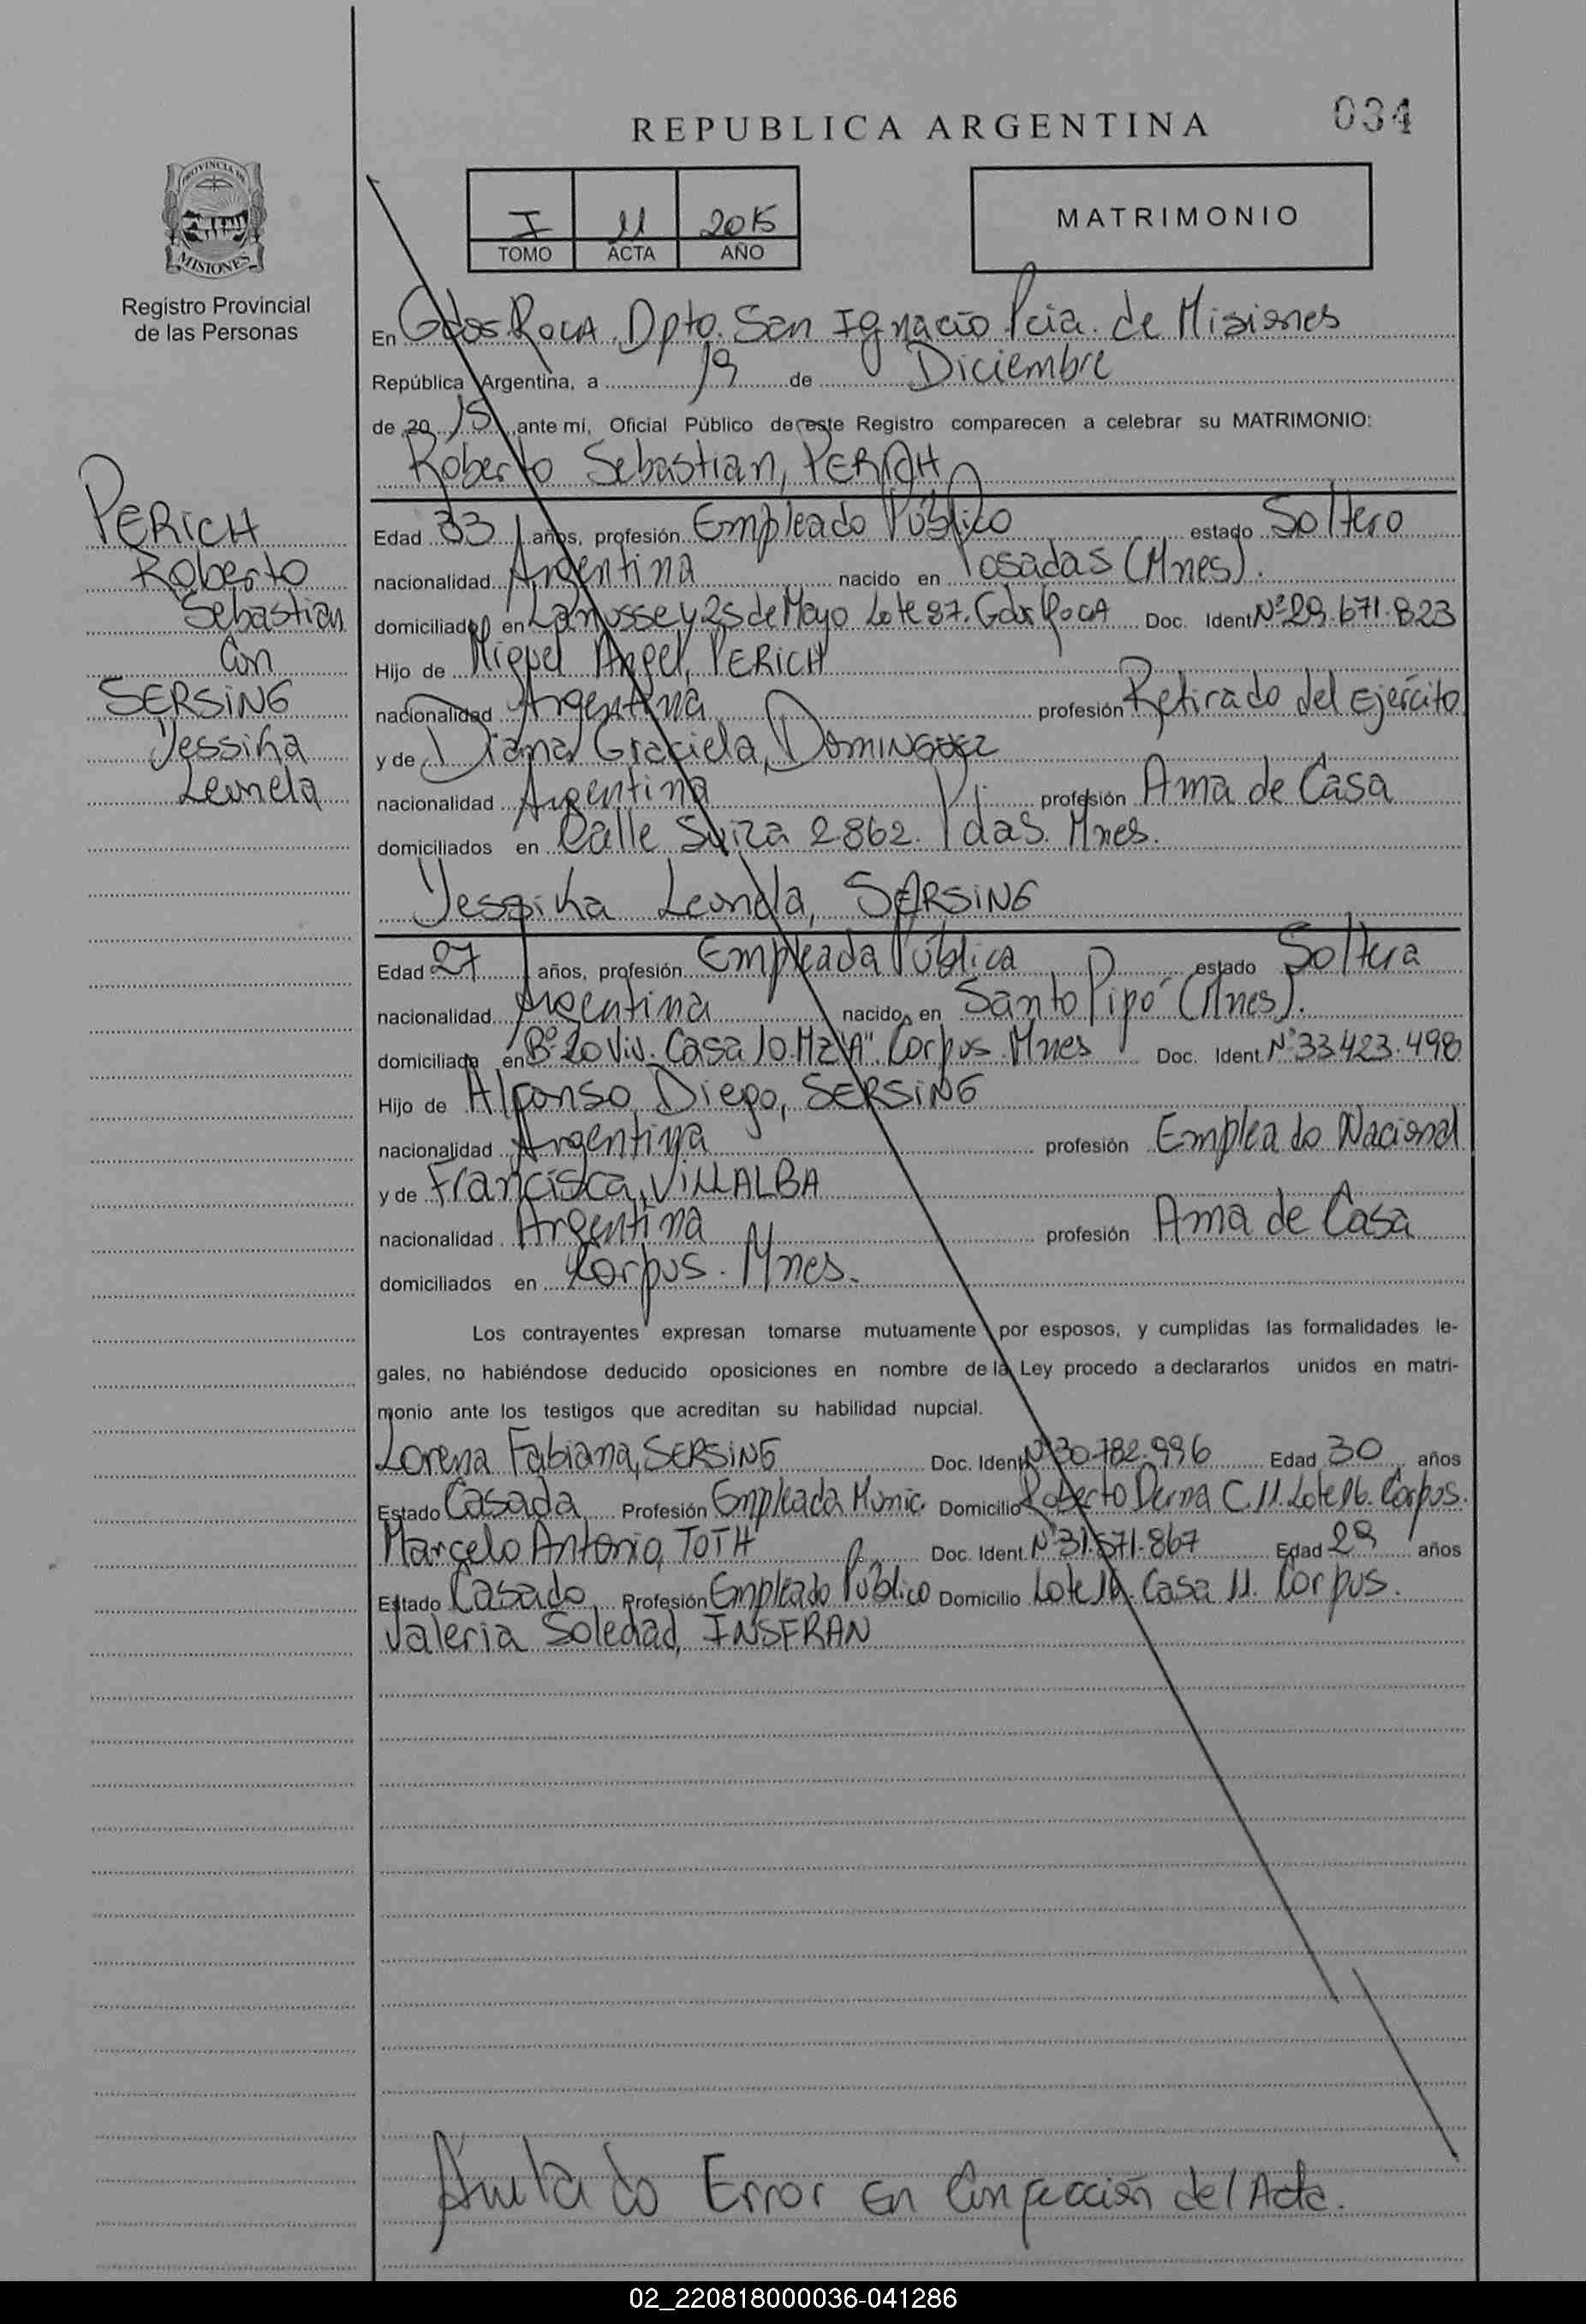 034
REPUBLICA ARGENTINA
PROVINCIA DE
MISIONES
Registro Provincial
de las Personas
I 11 2015
TOMO ACTA AÑO
MATRIMONIO
En Gdor Roca, Dpto. San Ignacio Pcia. de Misiones
República Argentina, a 19 de Diciembre
de 20 15, ante mi, Oficial Público de este Registro comparecen a celebrar su MATRIMONIO:
Roberto Sebastian, PERICH
PERICH
Roberto
Sebastian
Con
SERSING
Yessika
Leonela
Edad 33 años, profesión Empleado Público estado Soltero
nacionalidad Argentina nacido en Posadas (Mnes).
domiciliado en Lanusse y 25 de Mayo Lote 37. Gdor Roca Doc. Ident Nº 29.671.823
Hijo de Miguel Angel, PERICH
nacionalidad Argentina profesión Retirado del Ejército
y de Diana Graciela, DOMINGUEZ
nacionalidad Argentina profesión Ama de Casa
domiciliados en Calle Suiza 2862. Pdas. Mnes.
Yessika Leonela, SERSING
Edad 27 años, profesión Empleada Pública estado Soltera
nacionalidad Argentina nacido en Santo Pipó (Mnes).
domiciliada en Bº 20 Viv. Casa 10 Mz "A". Corpus Mnes Doc. Ident. Nº 33.423.498
Hijo de Alfonso Diego, SERSING
nacionalidad Argentina profesión Empleado Nacional
y de Francisca, VILLALBA
nacionalidad Argentina profesión Ama de Casa
domiciliados en Corpus. Mnes.
Los contrayentes expresan tomarse mutuamente por esposos, y cumplidas las formalidades le-
gales, no habiéndose deducido oposiciones en nombre de la Ley procedo a declararlos unidos en matri-
monio ante los testigos que acreditan su habilidad nupcial.
Lorena Fabiana, SERSING Doc. Ident Nº 30.782.996 Edad 30 años
Estado Casada Profesión Empleada Munic. Domicilio Roberto C. 11. Lote 16. Corpus.
Marcelo Antonio, TOTH Doc. Ident. Nº 31.571.867 Edad 29 años
Estado Casado Profesión Empleado Público Domicilio Lote Casa 11. Corpus.
Valeria Soledad, INSFRAN
Anulado Error en Confección del Acta.
02_220818000036-041286